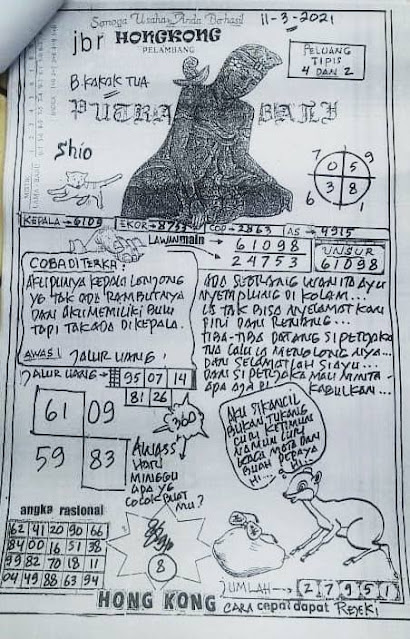 Semoga Usaha Anda Berhasil
11-3-2021
jbr HONGKONG
PELAMBANG
PELUANG
TIPIS
4 DAN 2
B.KAKAK TUA
PUTRA BALI
Shio
7 0 5 9
6 3 8 1
KEPALA → 6109
EKOR → 8735
COP → 2863
AS → 4915
LAWAN main → 61098
24753
UNSUR
61098
COBA DITERKA:
AKU PUNYA KEPALA LONJONG
YG TAK ADA RAMBUTNYA
DAN AKU MEMILIKI BULU
TAPI TAK ADA DI KEPALA.
AWAS! JALUR UANG!
JALUR UANG → 95 07 14
81 26
ADA SEORANG WANITA AYU
NYEMPLUNG DI KOLAM...
IA TAK BISA NYELAMATKAN
DIRI DARI RENANG...
TIBA-TIBA DATANG SI PERJAKA
TUA LALU IA MENOLONG NYA...
DAN SELAMATLAH SI AYU...
DAN SI PERJAKA MAU MINTA-
APA AJA DI KABULKAN...
61 09
59 83
360
AWASS
HARI
MINGGU
ADA YG
COCOK BUAT
MU?
AKU SI KANCIL
BUKAN TUKANG
CURI KETIMUN
NAMUN CURI
KACA MATA DAN
BUAH PEPAYA
HI... HI...
angka rasional
62 41 20 90 66
84 00 16 51 38
99 82 70 18 11
04 49 88 63 94
8
JUMLAH → 2 7 9 5 1
HONG KONG
CARA cepat dapat REJEKI